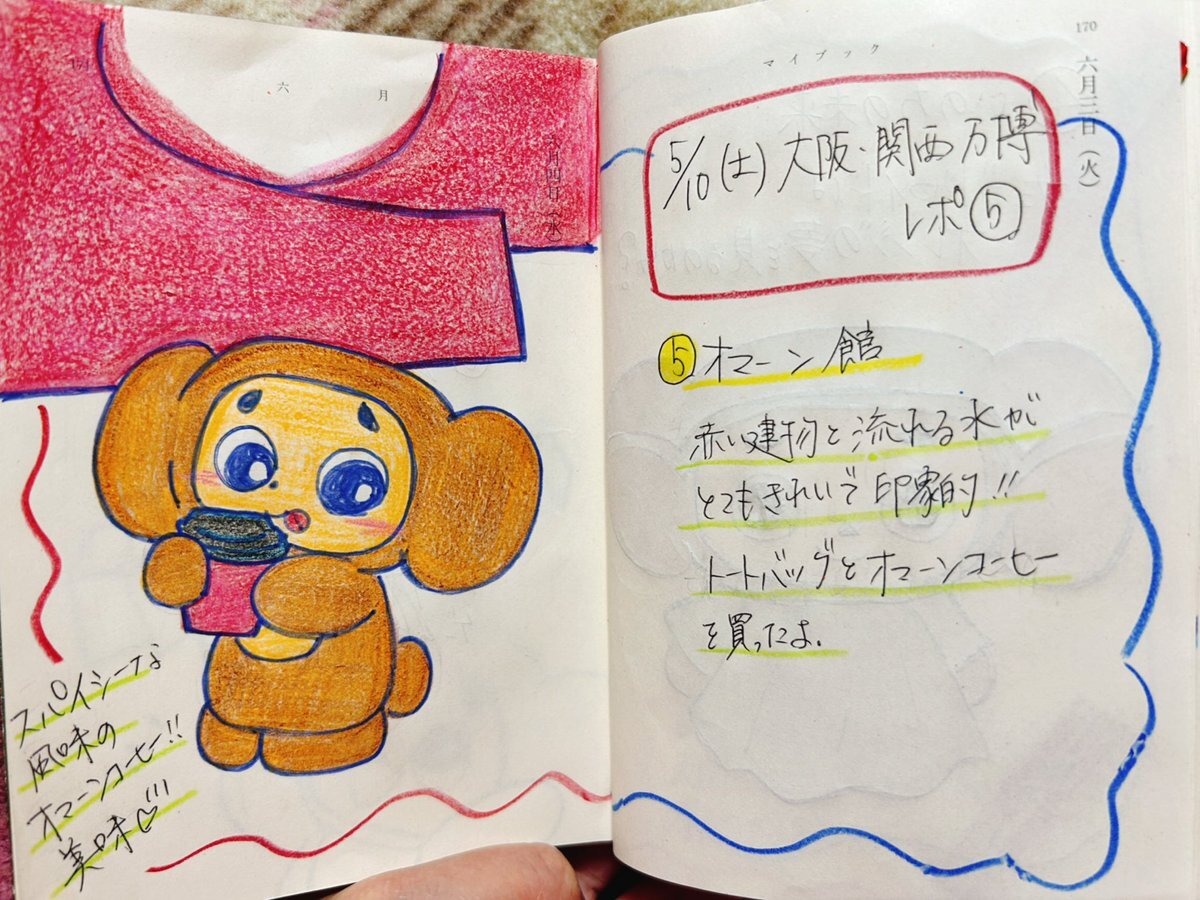 170
マイブック
六月三日(火)
5/10(土)大阪・関西万博
レポ⑤
⑤オマーン館
赤い建物と流れる水が
とてもきれいで印象的!!
トートバッグとオマーンコーヒー
を買ったよ.
171
六月
六月四日(水)
スパイシーな
風味の
オマーンコーヒー!!
美味♡